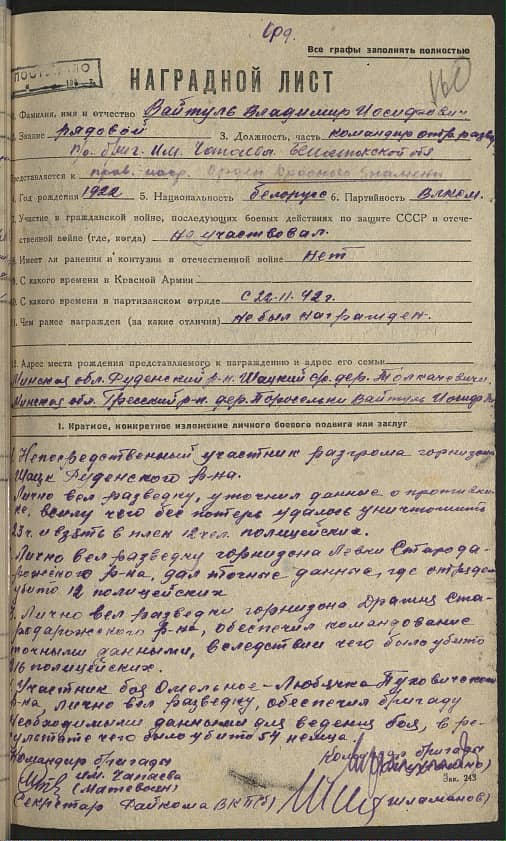 Все графы заполнять полностью
НАГРАДНОЙ ЛИСТ
Фамилия, имя и отчество Вайтуль Владимир Иосифович
Звание рядовой 3. Должность, часть командир отд. развед.
Представляется к прав. нагр. Орден Красного Знамени
Год рождения 1922 5. Национальность белорусс 6. Партийность Влксм.
Участие в гражданской войне, последующих боевых действиях по защите СССР и отече-
ственной войне (где, когда) Не участвовал.
Имеет ли ранения и контузии в отечественной войне Нет
С какого времени в Красной Армии
С какого времени в партизанском отряде С 22.11.42г.
Чем ранее награжден (за какие отличия) Не был награжден.
Адрес места рождения представляемого к награждению и адрес его семьи
Минская обл. Руденский р-н. Шацкий дер. Толкачевичи
Минская обл. Гресский р-н. дер. Вайтуль Иосиф
I. Краткое, конкретное изложение личного боевого подвига или заслуг
Непосредственный участник разгрома горнизона
Шацк Руденского р-на.
Лично вел разведку, уточнил данные о противни-
ке, всилу чего без потерь удалось уничтожить
23 ч. и взять в плен 12 чел. полицейских.
Лично вел разведку горнизона Левки Старода-
рожского р-на, дал точные данные, где отрядом
убито 12 полицейских
Лично вел разведку горнизона Дражня Ста-
родарожского р-на, обеспечил командование
точными данными, вследствии чего было убито
216 полицейских.
Участник боя Омельное-Любячка Пуховичского
р-на, лично вел разведку, обеспечил бригаду
необходимыми данными для ведения боя, в ре-
зультате чего было убито 54 немца.
Командир бригады Командир бригады
им. Чапаева
Зак. 243
Секретар Райкома ВКП(б)